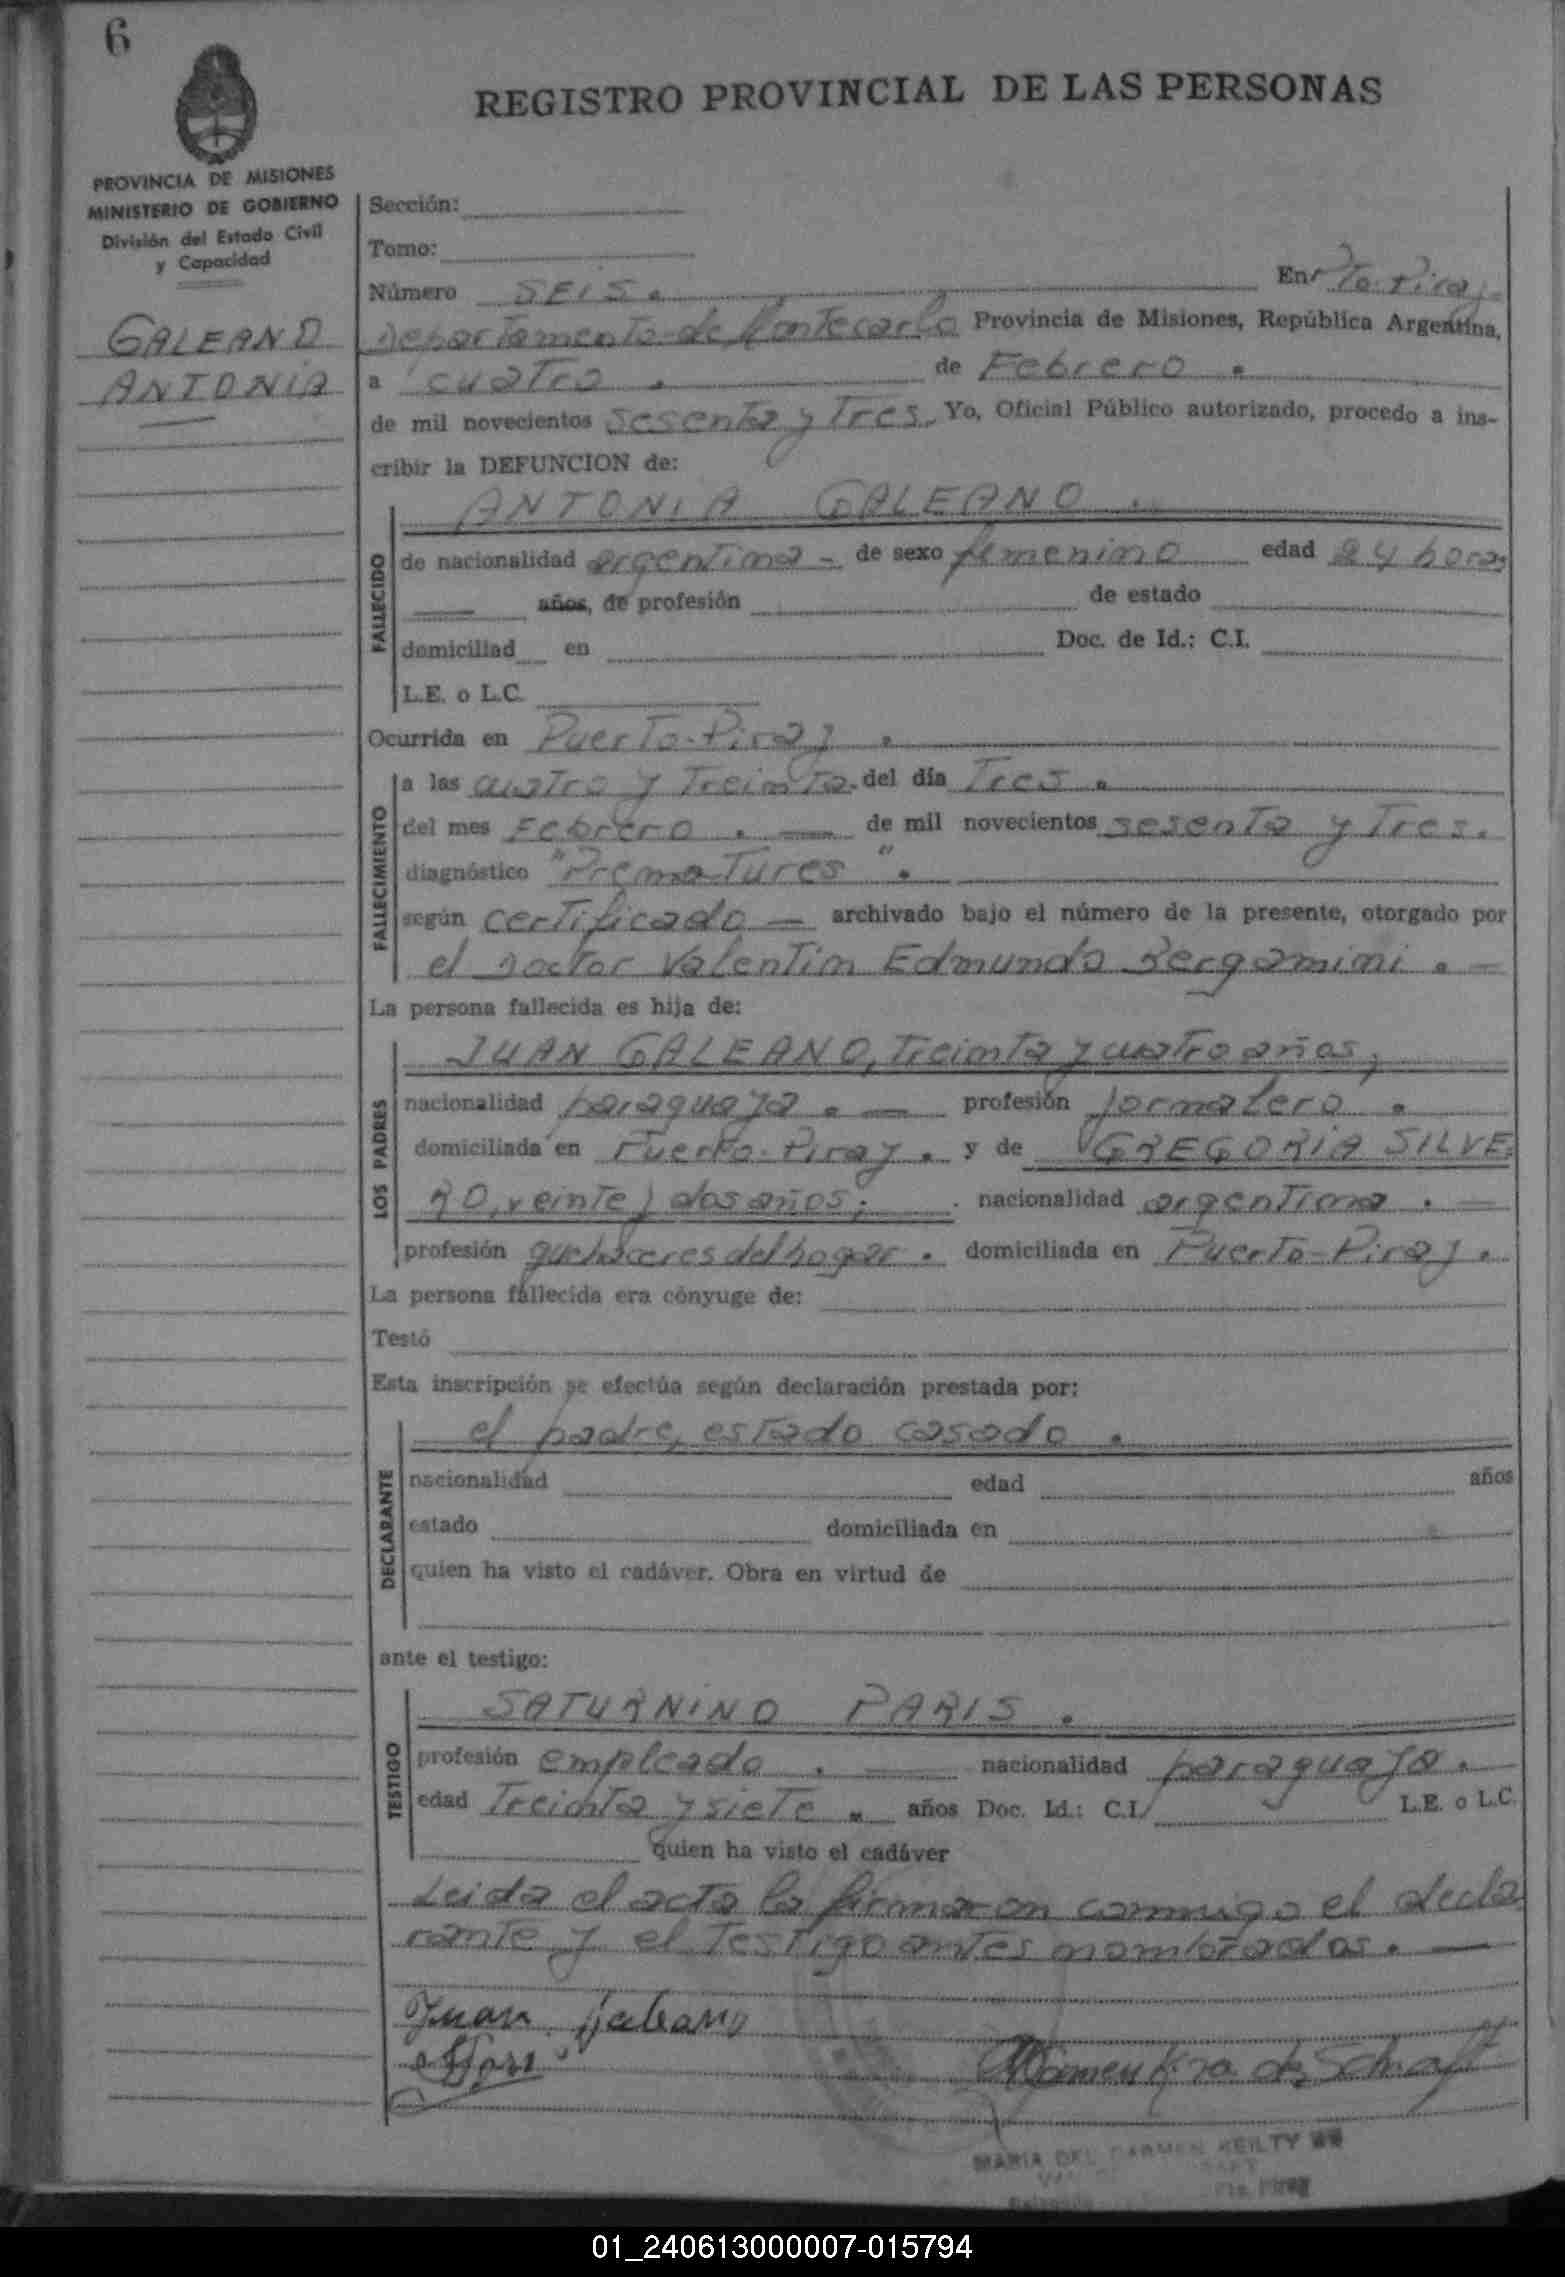 6
REGISTRO PROVINCIAL DE LAS PERSONAS
PROVINCIA DE MISIONES
MINISTERIO DE GOBIERNO
División del Estado Civil
y Capacidad
GALEANO
ANTONIA
Sección:
Tomo:
Número SEIS. En Pto. Piray-
Departamento de Montecarlo Provincia de Misiones, República Argentina,
a cuatro. de Febrero.
de mil novecientos sesenta y Tres. Yo, Oficial Público autorizado, procedo a ins-
cribir la DEFUNCION de:
ANTONIA GALEANO.
FALLECIDO
de nacionalidad argentina - de sexo femenino edad 24 horas
años, de profesión de estado
domiciliad en Doc. de Id.: C.I.
L.E. o L.C.
Ocurrida en Puerto-Piray.
FALLECIMIENTO
a las cuatro y Treinta. del día Tres.
del mes Febrero. — de mil novecientos sesenta y Tres.
diagnóstico "Prematures".
según certificado — archivado bajo el número de la presente, otorgado por
el Doctor Valentin Edmundo Bergamini. -
La persona fallecida es hija de:
LOS PADRES
JUAN GALEANO, Treinta y cuatro años,
nacionalidad paraguaya. — profesión jornalero.
domiciliada en Puerto-Piray. y de GREGORIA SILVE-
RO, veinte y dos años; nacionalidad argentina. -
profesión quehaceres del hogar. domiciliada en Puerto-Piray.
La persona fallecida era cónyuge de:
Testó
Esta inscripción se efectúa según declaración prestada por:
DECLARANTE
el padre, estado casado.
nacionalidad edad años
estado domiciliada en
quien ha visto el cadáver. Obra en virtud de
ante el testigo:
TESTIGO
SATURNINO PARIS.
profesión empleado. — nacionalidad paraguaya.
edad Treinta y siete. años Doc. Id.: C.I. L.E. o L.C.
quien ha visto el cadáver
Leida el acta la firmaron conmigo el decla
rante y el Testigo antes nombrados. —
Juan Galeano
MARIA DEL CARMEN KEILTY
01_240613000007-015794